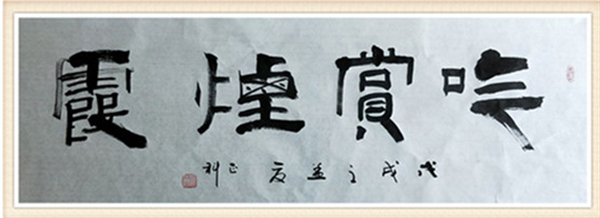 吟賞煙霞
戊戌之孟夏 正科